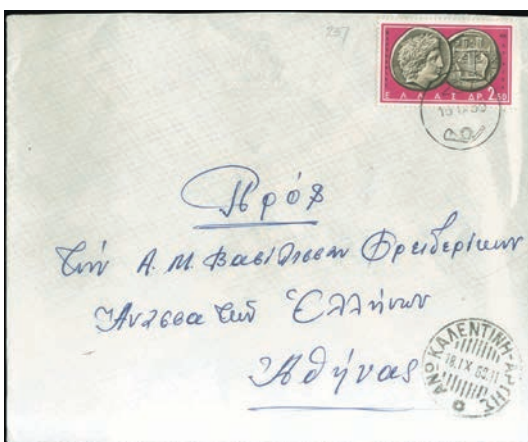 237
ΕΛΛΑΣ ΔΡ. 2.50
Πρός
Τήν Α. Μ. Βασίλισσαν Φρειδερίκην
Άνασσα τῶν Ἑλλήνων
Ἀθήνας
ΑΝΩ ΚΑΛΕΝΤΙΝΗ-ΑΡΤΗΣ
18.IX 60.11